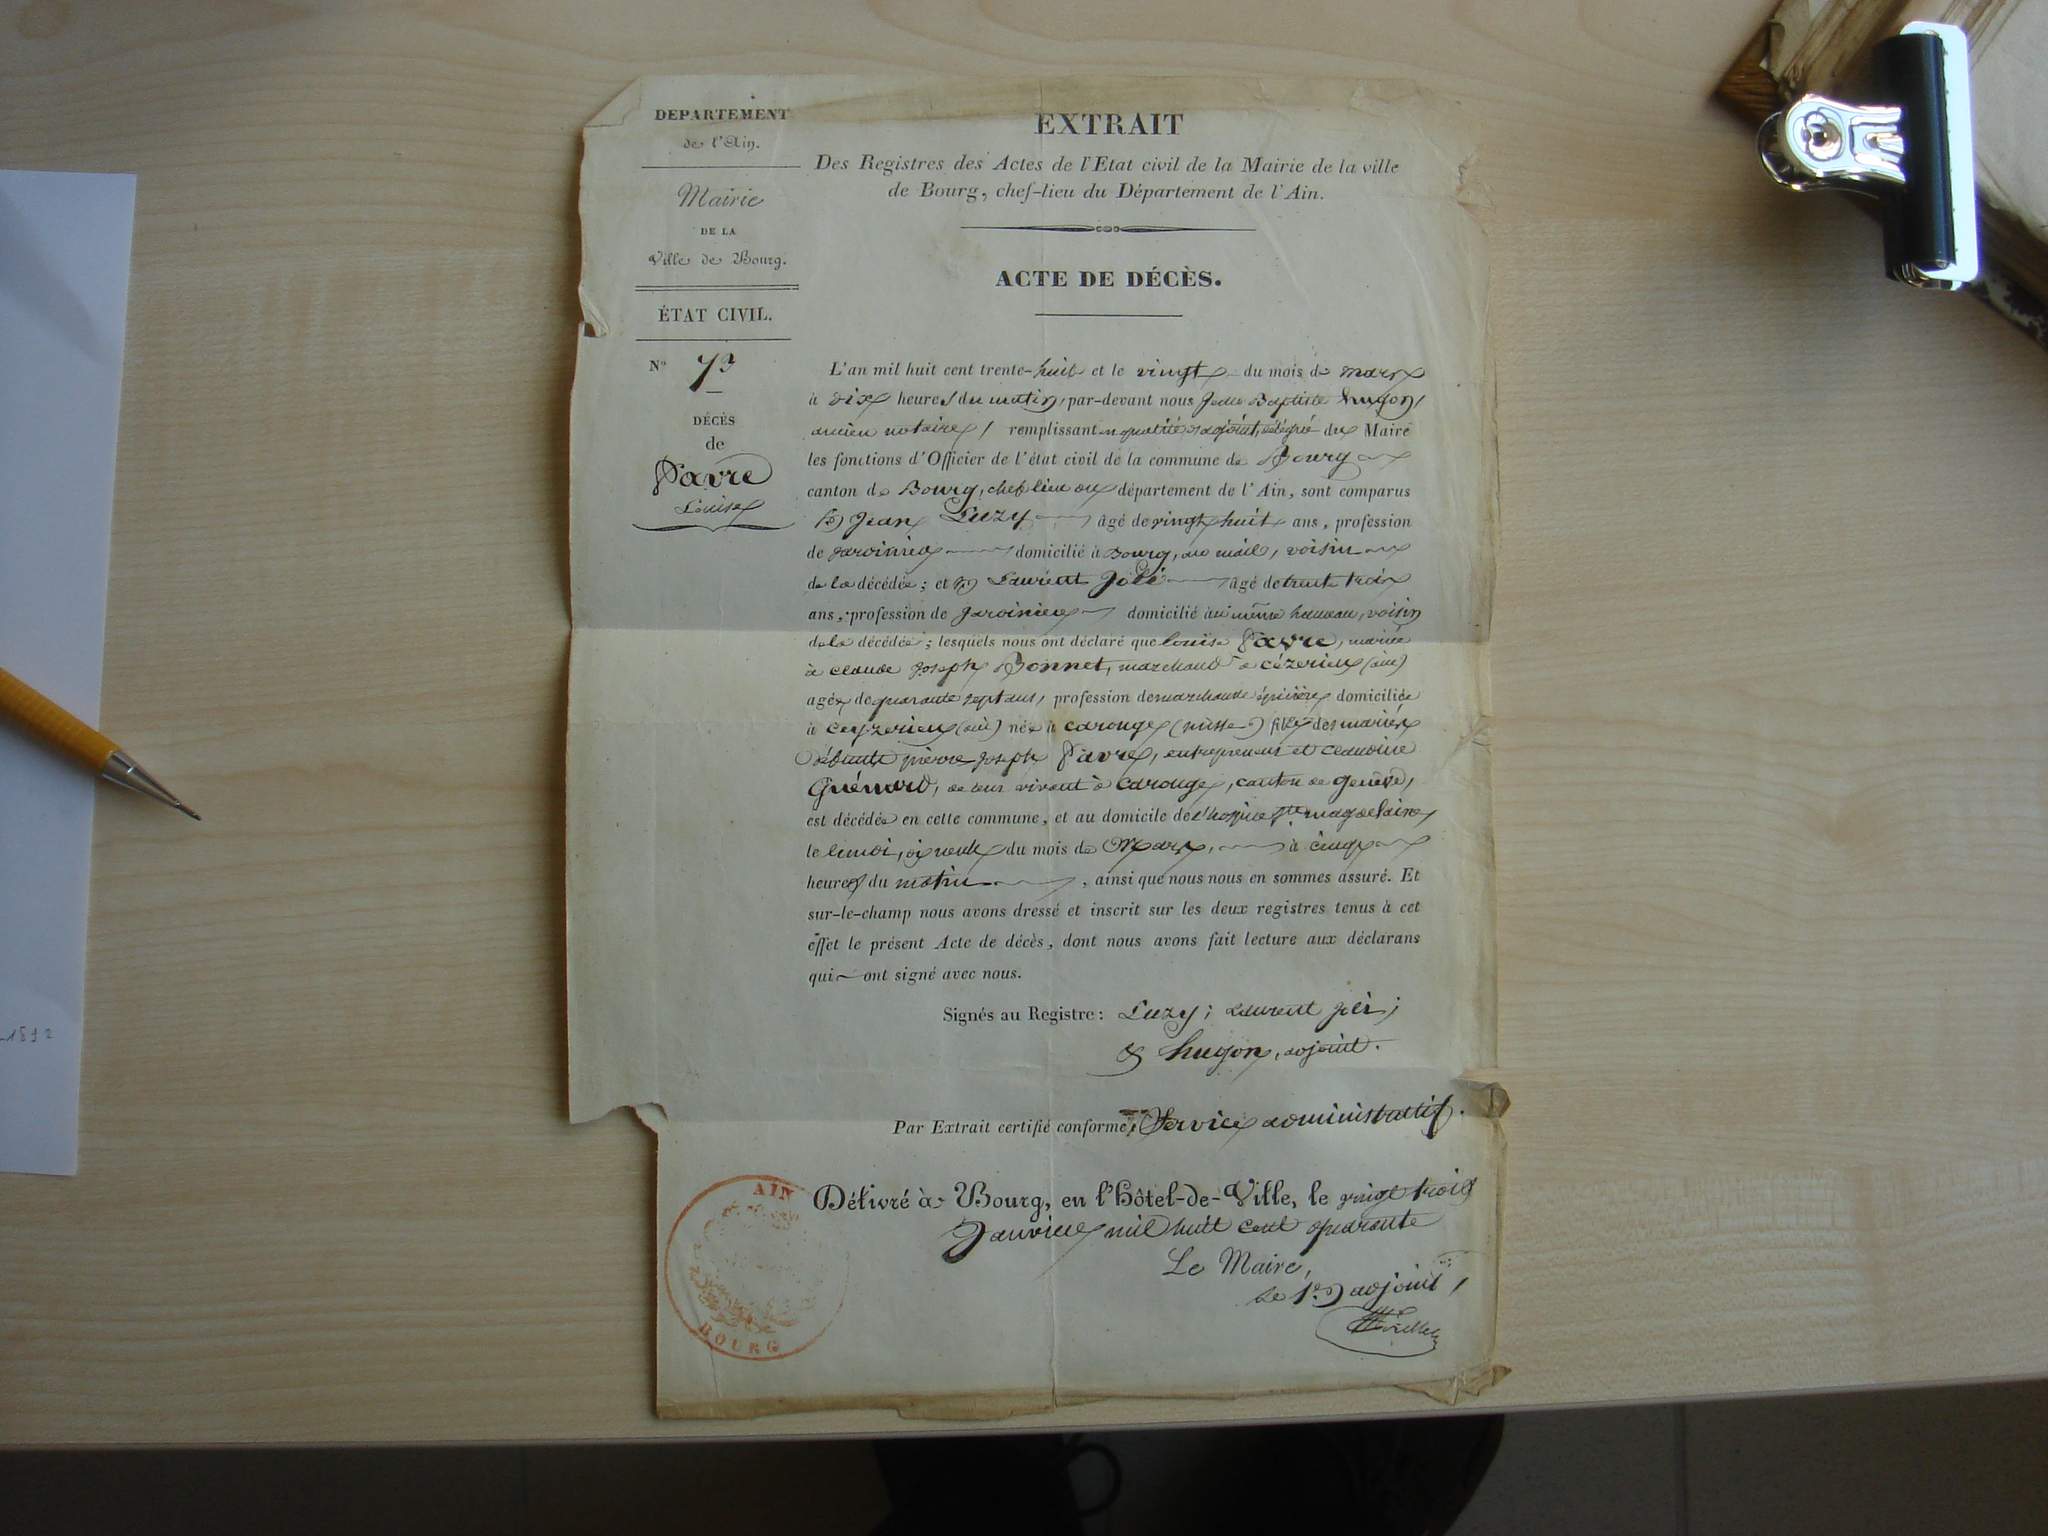 DEPARTEMENT
de l'Ain.
Mairie
DE LA
Ville de Bourg.
ÉTAT CIVIL.
N° 73
DÉCÈS
de
Favre
Louise
EXTRAIT
Des Registres des Actes de l'Etat civil de la Mairie de la ville
de Bourg, chef-lieu du Département de l'Ain.
ACTE DE DÉCÈS.
L'an mil huit cent trente-huit et le vingt du mois de mars
à dix heures du matin, par-devant nous Jean Baptiste hugon,
ancien notaire, remplissant en qualité d'adjoint, délégué du Maire
les fonctions d'Officier de l'état civil de la commune de Bourg
canton de Bourg, chef lieu du département de l'Ain, sont comparus
Jean Luzy âgé de vingt huit ans, profession
de jardinier domicilié à Bourg, au mail, voisin
de la décédée ; et Laurent âgé de trente trois
ans, profession de jardinier domicilié au même hameau, voisin
de la décédée ; lesquels nous ont déclaré que louise Favre, mariée
à claude joseph Bonnet, marchand à cézerieu (ain)
agée de quarante sept ans, profession de marchande épicière domiciliée
à ceyzerieu (ain) née à carouge (suisse) fille des mariés
défunts pierre joseph Favre, entrepreneur et claudine
Guénard, de leur vivant à carouge, canton de genève,
est décédée en cette commune, et au domicile de l'hospice Ste magdelaine
le lundi, dix neuf du mois de Mars, à cinq
heures du matin, ainsi que nous nous en sommes assuré. Et
sur-le-champ nous avons dressé et inscrit sur les deux registres tenus à cet
effet le présent Acte de décès, dont nous avons fait lecture aux déclarans
qui ont signé avec nous.
Signés au Registre : Luzy ; Laurent ;
& hugon, adjoint.
Par Extrait certifié conforme, Service administratif.
Délivré à Bourg, en l'Hôtel-de-Ville, le vingt trois
Janvier mil huit cent quarante
Le Maire,
Le 1er adjoint,
AIN
BOURG
1892